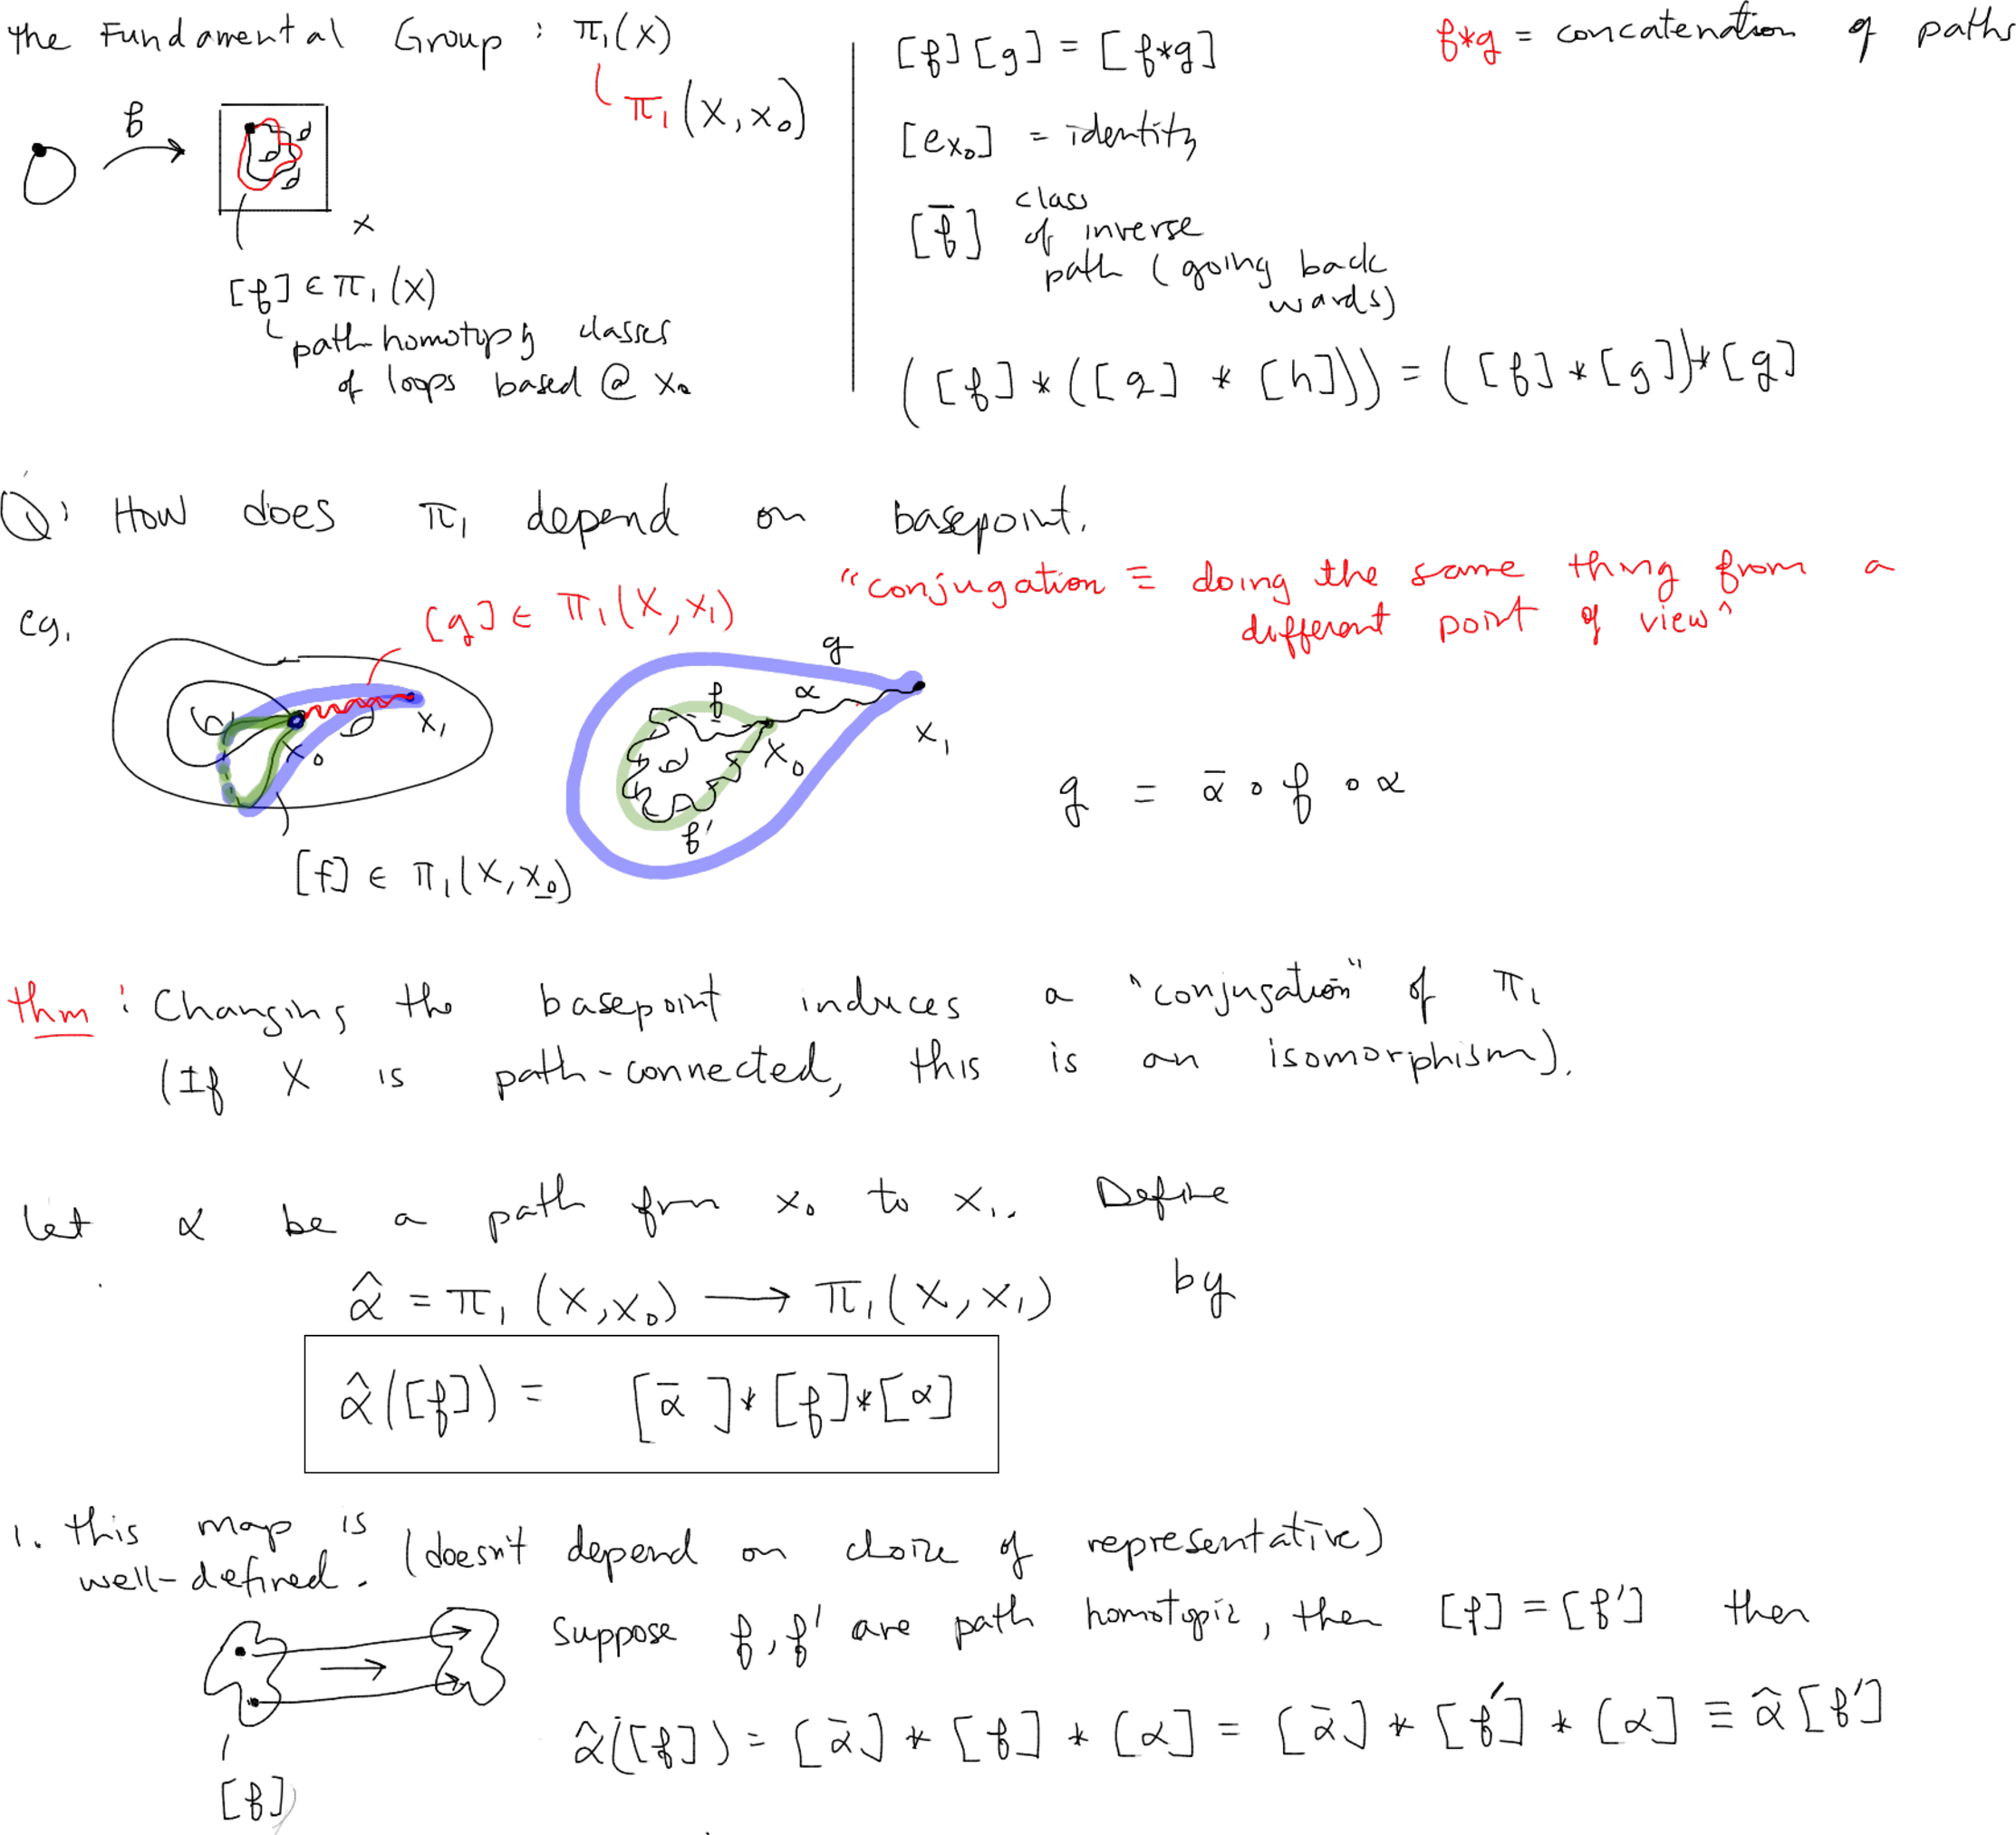 The Fundamental Group : π₁(X)
π₁(X, x₀)
f
X
[f] ∈ π₁(X)
path-homotopy classes
of loops based @ x₀
[f][g] = [f*g]
f*g = concatenation of paths
[e_x₀] = identity
[f̄] class
of inverse
path (going back
wards)
([f]*([g] * [h])) = ([f]*[g])*[g]
Q: How does π₁ depend on basepoint.
"conjugation ≡ doing the same thing from a
different point of view"
eg.
[g] ∈ π₁(X, x₁)
x₁
x₀
[f] ∈ π₁(X, x₀)
g
f
α
x₁
x₀
f'
g = ᾱ ∘ f ∘ α
thm : Changing the basepoint induces a "conjugation" of π₁
(If X is path-connected, this is an isomorphism).
Let α be a path from x₀ to x₁. Define
α̂ = π₁(X, x₀) → π₁(X, x₁) by
α̂([f]) = [ᾱ]*[f]*[α]
1. this map is
well-defined. (doesn't depend on choice of representative)
suppose f, f' are path homotopic, then [f] = [f'] then
[f]
α̂([f]) = [ᾱ] * [f] * [α] = [ᾱ] * [f'] * [α] ≡ α̂[f']